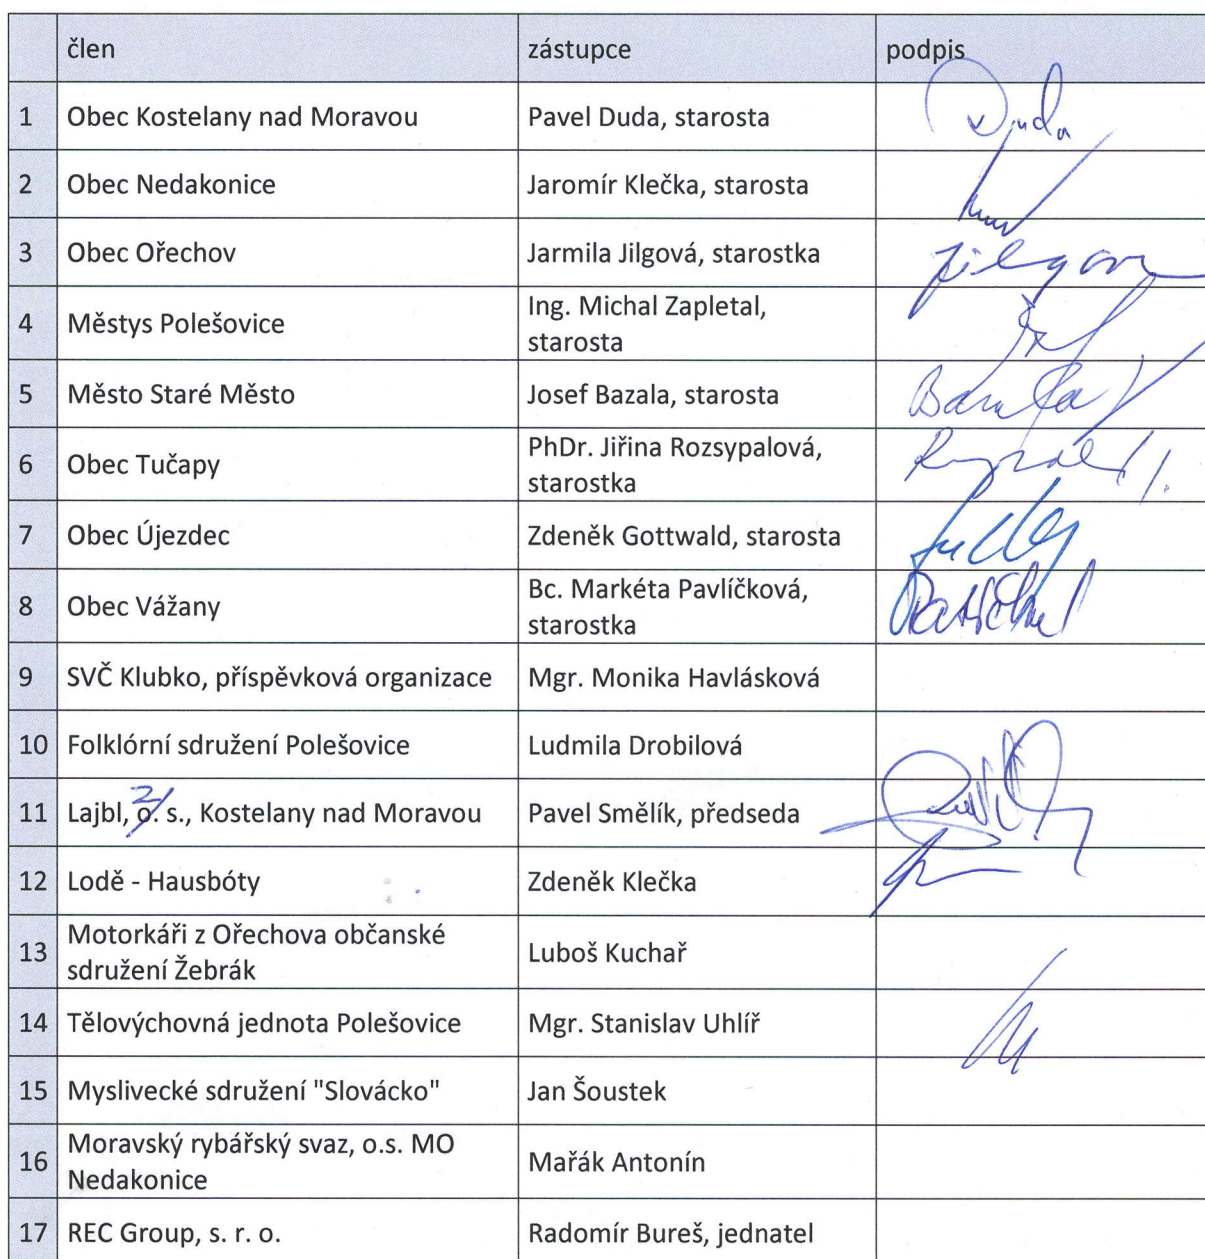 člen zástupce podpis
1 Obec Kostelany nad Moravou Pavel Duda, starosta Duda
2 Obec Nedakonice Jaromír Klečka, starosta
3 Obec Ořechov Jarmila Jilgová, starostka Jilgová
4 Městys Polešovice Ing. Michal Zapletal,
starosta
5 Město Staré Město Josef Bazala, starosta
6 Obec Tučapy PhDr. Jiřina Rozsypalová,
starostka
7 Obec Újezdec Zdeněk Gottwald, starosta
8 Obec Vážany Bc. Markéta Pavlíčková,
starostka
9 SVČ Klubko, příspěvková organizace Mgr. Monika Havlásková
10 Folklórní sdružení Polešovice Ludmila Drobilová
11 Lajbl, o. s., Kostelany nad Moravou Pavel Smělík, předseda
12 Lodě - Hausbóty Zdeněk Klečka
13 Motorkáři z Ořechova občanské
sdružení Žebrák Luboš Kuchař
14 Tělovýchovná jednota Polešovice Mgr. Stanislav Uhlíř
15 Myslivecké sdružení "Slovácko" Jan Šoustek
16 Moravský rybářský svaz, o.s. MO
Nedakonice Mařák Antonín
17 REC Group, s. r. o. Radomír Bureš, jednatel